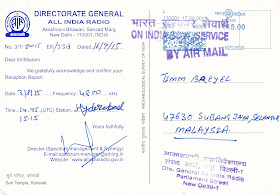 DIRECTORATE GENERAL
ALL INDIA RADIO
Akashvani Bhawan, Sansad Marg
New Delhi - 110001, INDIA
No. 3/1/2015
Dear Sir/Madam
We gratefully acknowledge and confirm your
Reception Report.
Date 3/1/15 Frequency 4800 kHz
Time 14.45 (UTC) Station. Hyderabad
15.15
Yours faithfully
Director (Spectrum Management & Synergy)
Email-spectrum-manager@air.org.in
Website: www.allindiaradio.gov.in
Sun Temple, Konarak
ARCHAEOLOGICAL SURVEY OF INDIA
भारत सरकार सेवार्थ
ON INDIA GOVT. SERVICE
BY AIR MAIL
TIMM BREYEL
47630 SUBANG JAYA, SELANGOR
MALAYSIA
Parliament Street
New Delhi-1